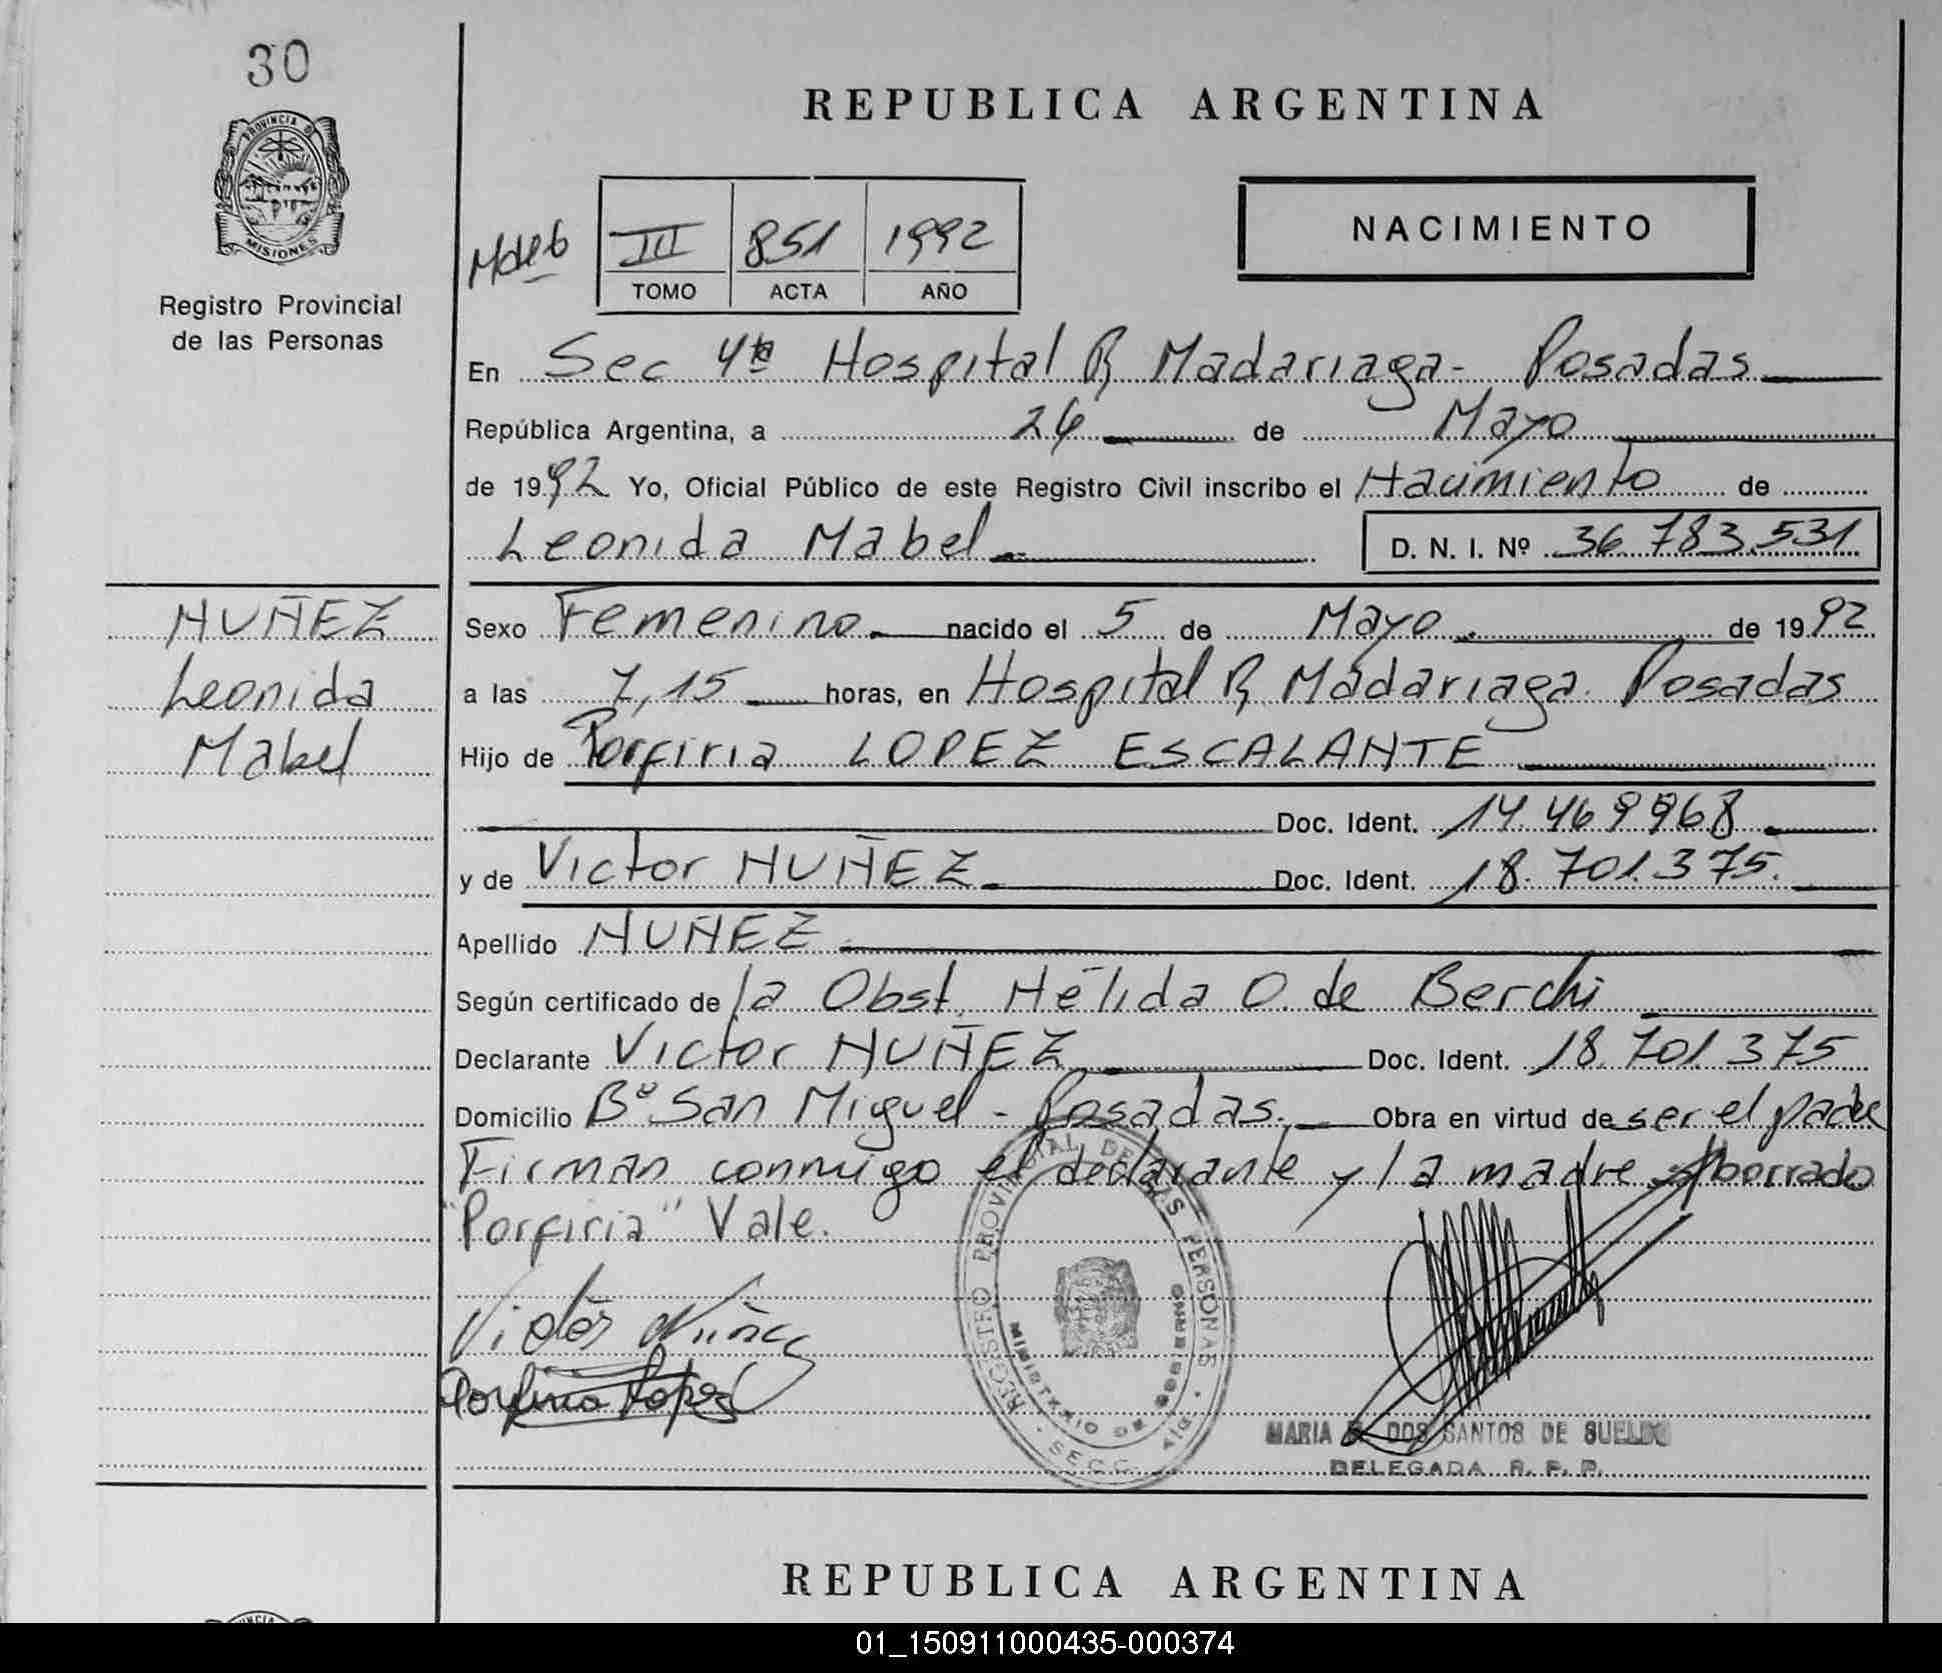 30
REPUBLICA ARGENTINA
PROVINCIA DE
MISIONES
Registro Provincial
de las Personas
III 851 1992
TOMO ACTA AÑO
NACIMIENTO
En Sec 4ta Hospital R Madariaga - Posadas
República Argentina, a 26 de Mayo
de 1992 Yo, Oficial Público de este Registro Civil inscribo el Nacimiento de
Leonida Mabel D. N. I. Nº 36.783.531
NUÑEZ
Leonida
Mabel
Sexo Femenino nacido el 5 de Mayo de 1992
a las 7,15 horas, en Hospital R Madariaga. Posadas
Hijo de Porfiria LOPEZ ESCALANTE
Doc. Ident. 14.469968
y de Victor NUÑEZ Doc. Ident. 18.701.375.
Apellido NUÑEZ
Según certificado de la Obst. Nélida O. de Berchi
Declarante Victor NUÑEZ Doc. Ident. 18.701.375
Domicilio Bº San Miguel - Posadas. Obra en virtud de ser el padre
Firman conmigo el declarante y la madre borrado
"Porfiria" Vale.
Victor Nuñez
Porfiria Lopez
REGISTRO PROVINCIAL DE LAS PERSONAS
MINISTERIO DE GOBIERNO
SECC.
MARIA DOS SANTOS DE SUELDO
DELEGADA R. P. P.
REPUBLICA ARGENTINA
01_150911000435-000374